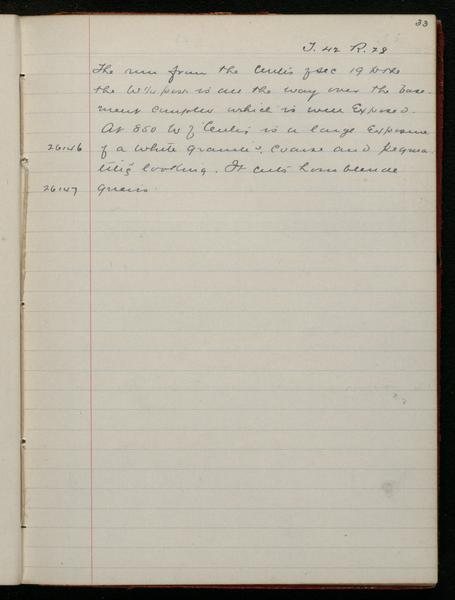 33
T. 42 R. 28
The run from the Center of sec 19 to the
the W 1/4 post is all the way over the base-
ment complex which is well Exposed.
At 850 W of Center is a large Exposure
26146 of a white granite, coarse and pegma-
titic looking. It cuts hornblende
26147 gneiss.